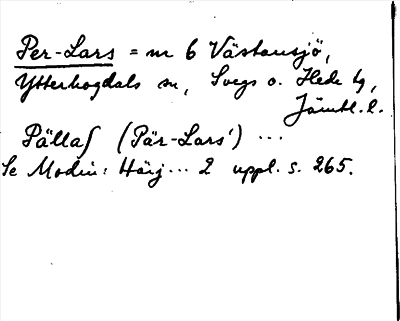 Per-Lars = nr 6 Västansjö,
Ytterhogdals sn, Svegs o. Hede tg,
Jämtl. l.
Pällas (Pär-Lars') ...
Se Modin: Härj... 2 uppl. s. 265.